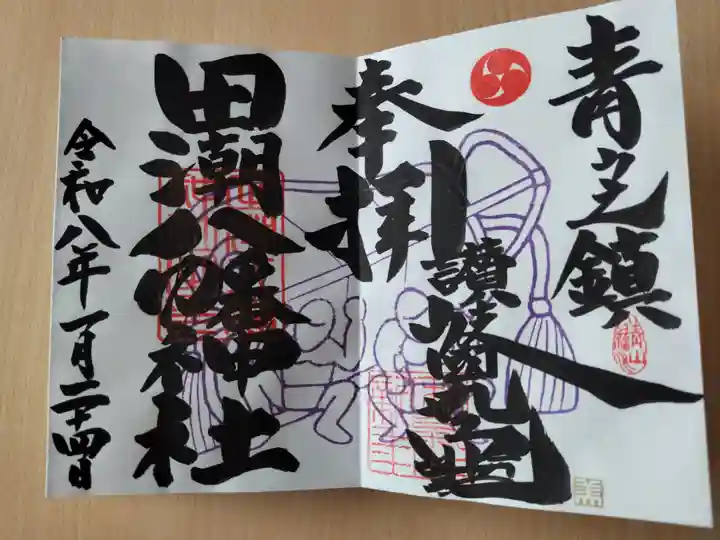 青之鎮
讃岐丸亀
奉拝
田潮八幡神社
令和八年一月二十四日